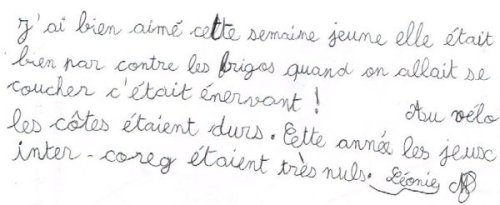 J'ai bien aimé cette semaine jeune elle était
bien par contre les frigos quand on allait se
coucher c'était énervant ! Au vélo
les côtes étaient durs. Cette année les jeux
inter-coreg étaient très nuls. Léonie